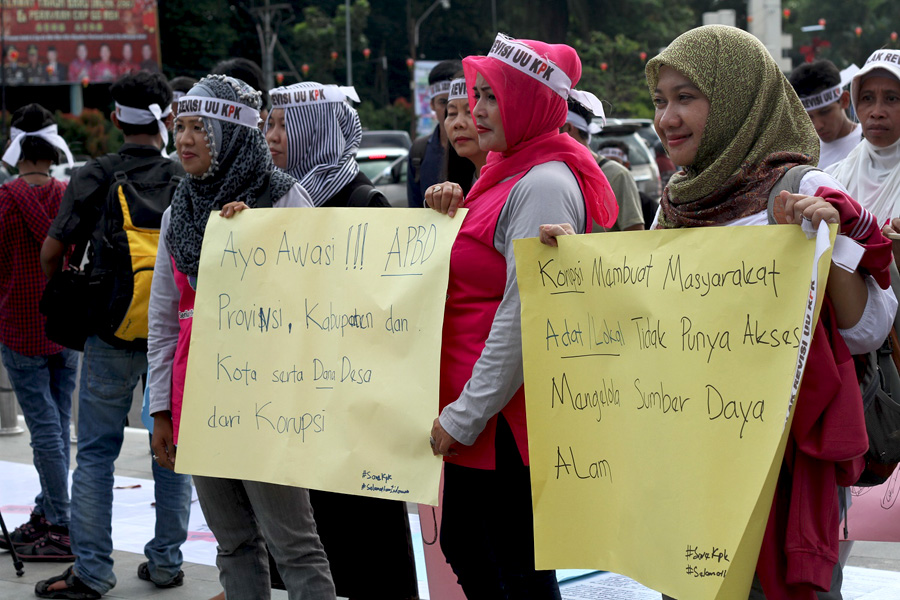 REVISI UU KPK
REVISI UU KPK
REVISI UU KPK
Ayo Awasi !!! APBD
Provinsi, Kabupaten dan
Kota serta Dana Desa
dari Korupsi
#SaveKpk
Korupsi Mambuat Masyarakat
Adat/Lokal Tidak Punya Akses
Mengelola Sumber Daya
ALam
#SaveKpk
REVISI UU KPK